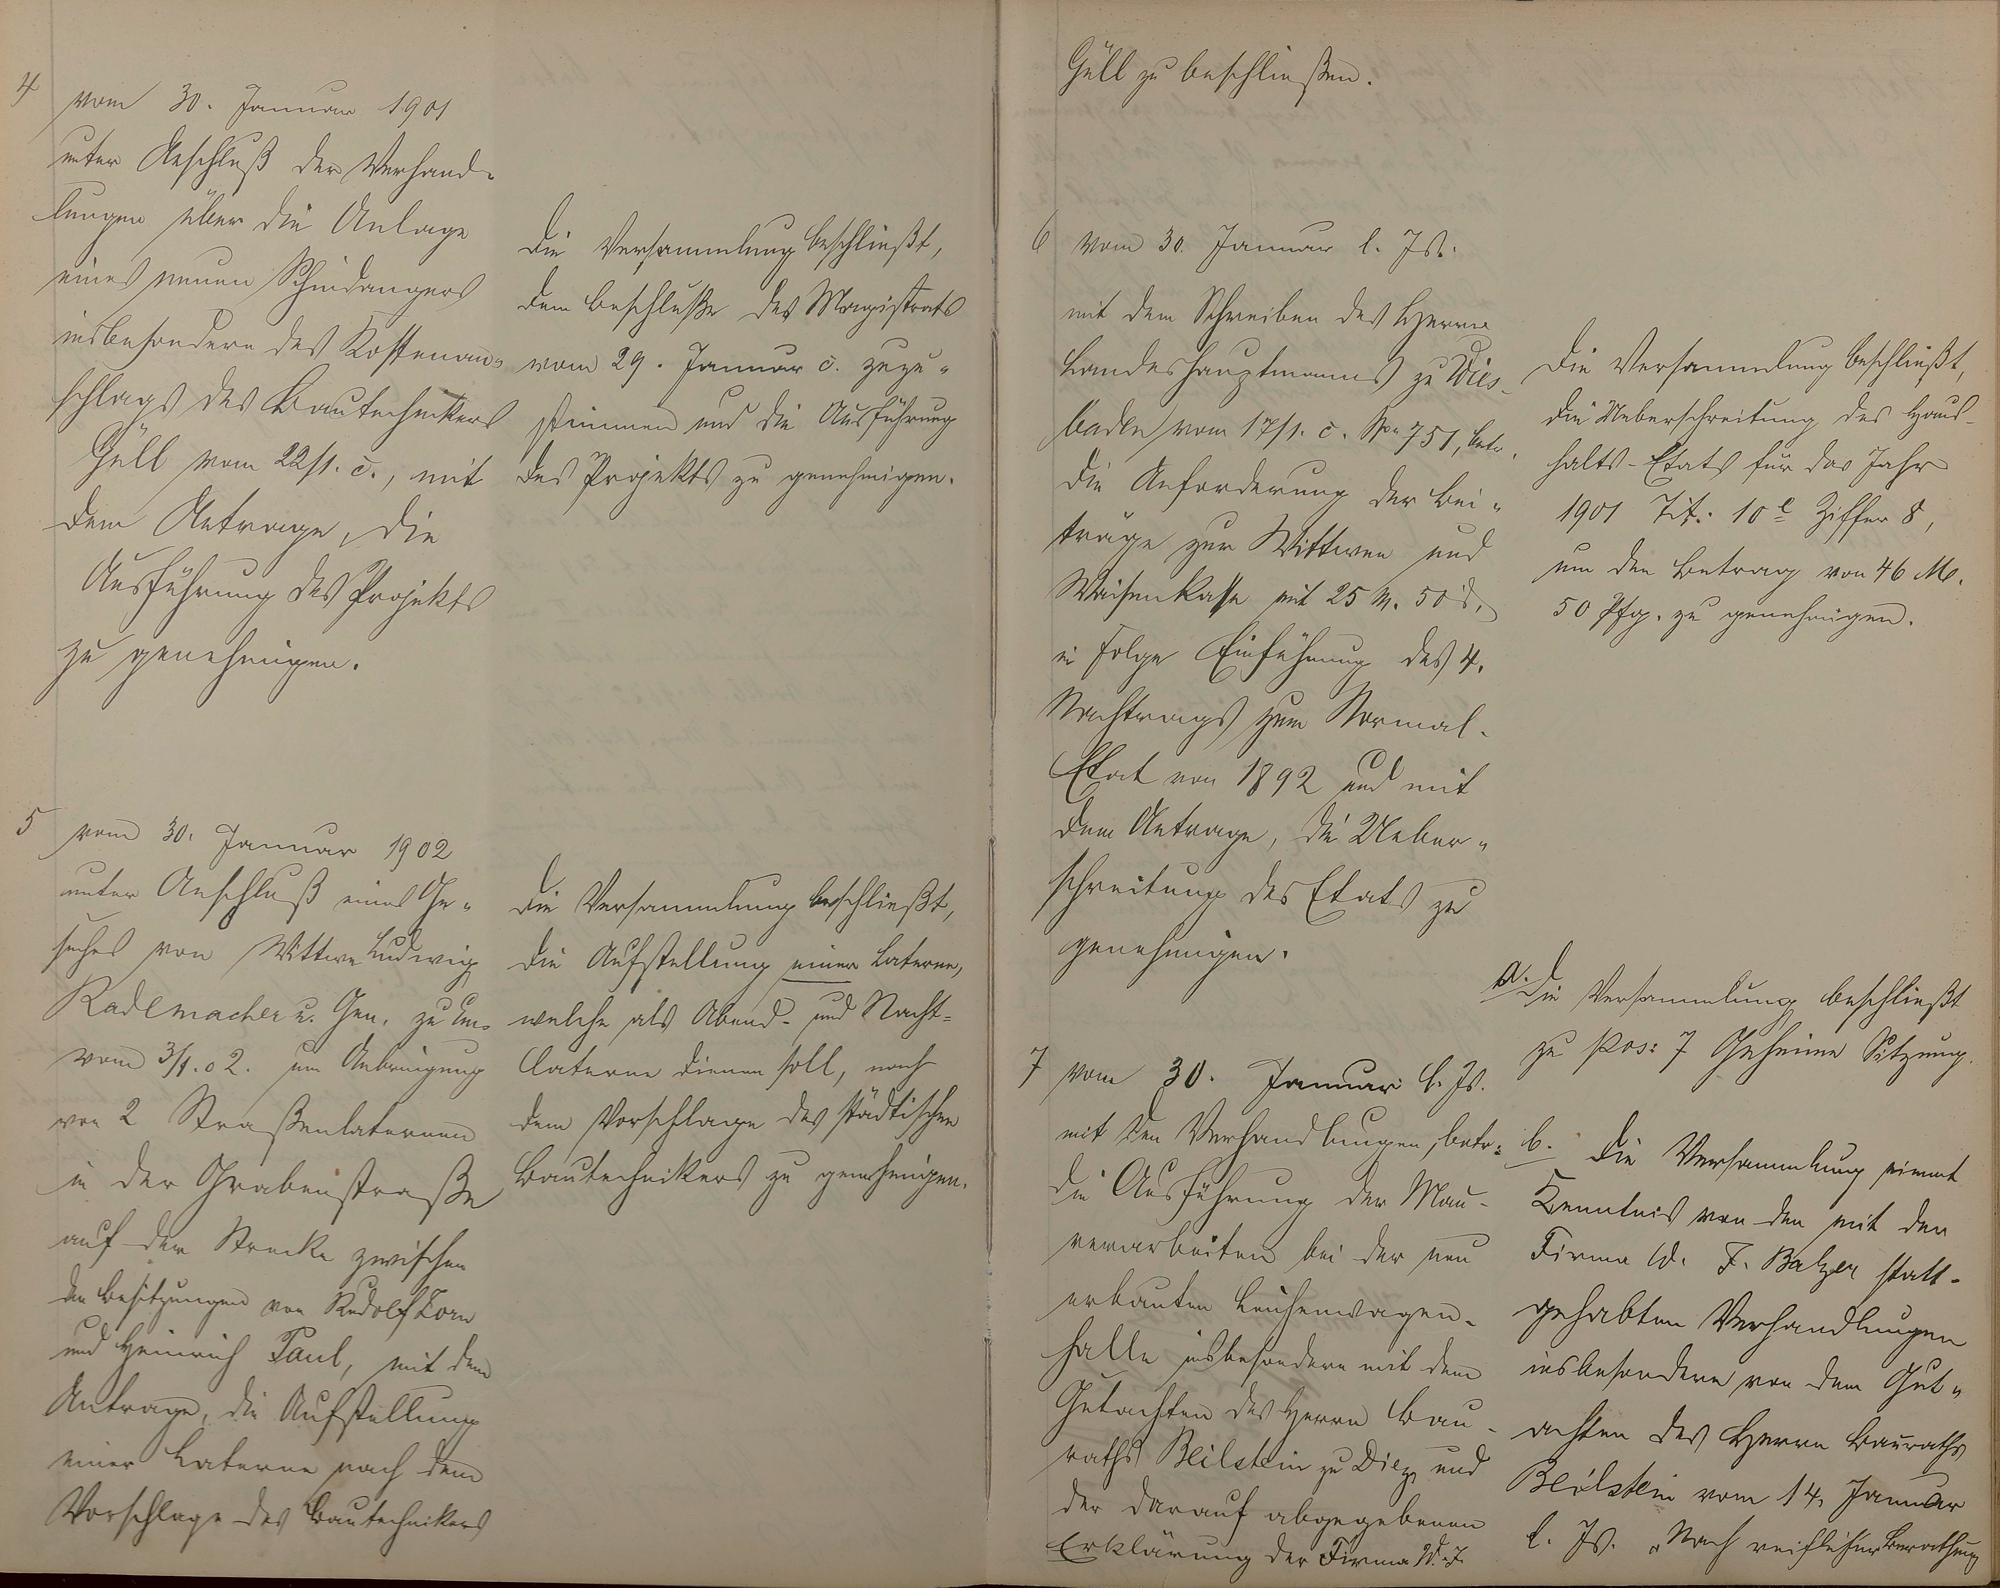 4
vom 30. Januar 1901
unter Anschluß der Verhand-
lungen über die Anlage
eines neuen Schindangers
insbesondere des Kostenan-
schlags des Bautechnikers
Güll vom 22/1. c., mit
dem Antrage, die
Ausführung des Projekts
zu genehmigen.
Die Versammlung beschließt,
dem Beschluße des Magistrats
vom 29. Januar c. zuzu-
stimmen und die Ausführung
des Projekts zu genehmigen.
5
vom 30. Januar 1902
unter Anschluß eines Ge-
suches von Wittwe Ludwig
Rademacher u. Gen. zu Ems
vom 3/1.02. um Anbringung
von 2 Straßenlaternen
in der Grabenstraße
auf der Strecke zwischen
den Besitzungen von Rudolf
und Heinrich Paul, mit dem
Antrage, die Aufstellung
einer Laterne nach dem
Vorschlage des Bautechnikers
Die Versammlung beschließt,
die Aufstellung einer Laterne,
welche als Abend- und Nacht-
laterne dienen soll, nach
dem Vorschlage des städtischen
Bautechnikers zu genehmigen.
Güll zu beschließen.
6
vom 30. Januar l. Js.
mit dem Schreiben des Herrn
Landeshauptmanns zu Wies-
baden vom 17/1. c. No 751, betr.
die Anforderung der Bei-
träge zur Wittwen und
Waisenkasse mit 25 M. 50 d.,
in Folge Einführung des 4.
Nachtrags zum Normal-
Etat von 1892 und mit
dem Antrage, die Ueber-
schreitung des Etats zu
genehmigen.
Die Versammlung beschließt,
die Ueberschreitung des Haus-
halts-Etats für das Jahr
1901 Tit. 10 e Ziffer 8,
um den Betrag von 46 M.
50 Pfg. zu genehmigen.
7
vom 30. Januar l. Js.
mit den Verhandlungen, betr.
die Ausführung der Mau-
rerarbeiten bei der neu
erbauten Leichenwagen-
halle insbesondere mit dem
Gutachten des Herrn Bau-
raths Beilstein zu Diez und
der darauf abgegebenen
Erklärung der Firma W. F.
a. Die Versammlung beschließt
zu Pos: 7 Geheime Sitzung.
b. Die Versammlung nimmt
Kenntnis von den mit der
Firma W. F. Balzer statt-
gehabten Verhandlungen
insbesondere von dem Gut-
achten des Herrn Bauraths
Beilstein vom 14. Januar
l. Js. Nach reiflicher Berathung